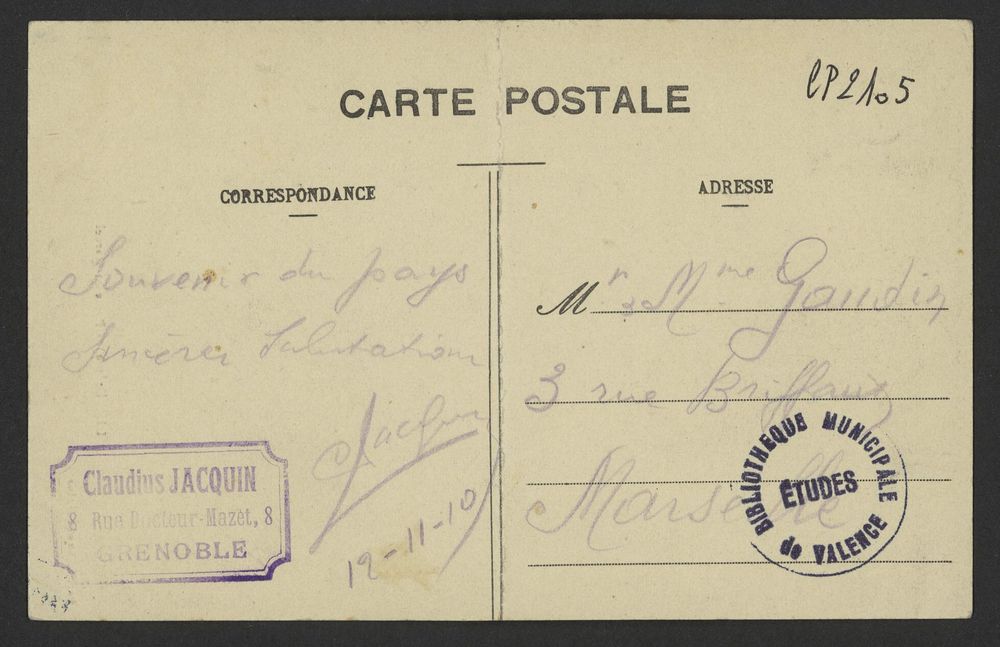 CARTE POSTALE
CP21.5
CORRESPONDANCE
Souvenir du pays
Sincères Salutations
Jacquin
12-11-10
Claudius JACQUIN
8 Rue Docteur-Mazet, 8
GRENOBLE
ADRESSE
Mr & Mme Gaudin
3 rue
Marseille
BIBLIOTHEQUE MUNICIPALE
ÉTUDES
de VALENCE